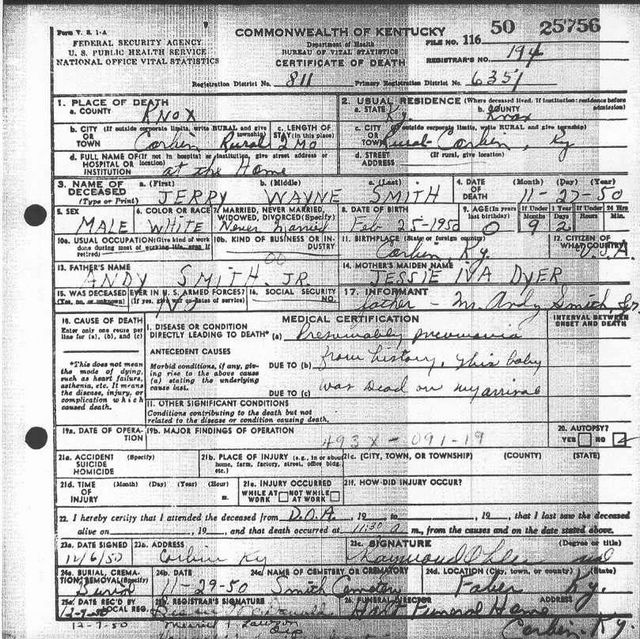 Form V. S. 1-A
COMMONWEALTH OF KENTUCKY
50 25756
FEDERAL SECURITY AGENCY
U. S. PUBLIC HEALTH SERVICE
NATIONAL OFFICE VITAL STATISTICS
Department of Health
BUREAU OF VITAL STATISTICS
CERTIFICATE OF DEATH
FILE NO. 116
REGISTRAR'S NO. 194
Registration District No. 811 Primary Registration District No. 6351
1. PLACE OF DEATH
a. COUNTY KNOX
2. USUAL RESIDENCE (Where deceased lived. If institution: residence before admission)
a. STATE Ky. b. COUNTY Knox
b. CITY (If outside corporate limits, write RURAL and give township) OR TOWN Corbin Rural
c. LENGTH OF STAY (in this place) 2 MO
c. CITY (If outside corporate limits, write RURAL and give township) OR TOWN Rural-Corbin, Ky
d. FULL NAME OF (If not in hospital or institution, give street address or location) HOSPITAL OR INSTITUTION at the Home
d. STREET ADDRESS (If rural, give location)
3. NAME OF DECEASED (Type or Print)
a. (First) JERRY b. (Middle) WAYNE c. (Last) SMITH
4. DATE OF DEATH (Month) (Day) (Year) 11-27-50
5. SEX MALE
6. COLOR OR RACE WHITE
7. MARRIED, NEVER MARRIED, WIDOWED, DIVORCED (Specify) Never Married
8. DATE OF BIRTH Feb 25-1950
9. AGE (In years last birthday) 0 If Under 1 9 2 If Under 24 Hrs
10a. USUAL OCCUPATION (Give kind of work done during most of working life, even if retired)
10b. KIND OF BUSINESS OR INDUSTRY
11. BIRTHPLACE (State or foreign country) Corbin Ky.
12. CITIZEN OF WHAT COUNTRY? U.S.A.
13. FATHER'S NAME ANDY SMITH JR.
14. MOTHER'S MAIDEN NAME JESSIE IVA DYER
15. WAS DECEASED EVER IN U. S. ARMED FORCES? (Yes, no, or unknown) (If yes, give war or dates of service) NO
16. SOCIAL SECURITY NO.
17. INFORMANT Father - Mr. Andy Smith Jr.
18. CAUSE OF DEATH
Enter only one cause per line for (a), (b), and (c)
MEDICAL CERTIFICATION
INTERVAL BETWEEN ONSET AND DEATH
I. DISEASE OR CONDITION DIRECTLY LEADING TO DEATH* (a) Presumably pneumonia
*This does not mean the mode of dying, such as heart failure, asthenia, etc. It means the disease, injury, or complication which caused death.
ANTECEDENT CAUSES
Morbid conditions, if any, giving rise to the above cause (a) stating the underlying cause last.
DUE TO (b) from history. This baby
DUE TO (c) was dead on my arrival
II. OTHER SIGNIFICANT CONDITIONS
Conditions contributing to the death but not related to the disease or condition causing death.
19a. DATE OF OPERATION
19b. MAJOR FINDINGS OF OPERATION
493X-091-19
20. AUTOPSY? YES NO
21a. ACCIDENT SUICIDE HOMICIDE (Specify)
21b. PLACE OF INJURY (e.g., in or about home, farm, factory, street, office bldg., etc.)
21c. (CITY, TOWN, OR TOWNSHIP) (COUNTY) (STATE)
21d. TIME OF INJURY (Month) (Day) (Year) (Hour) m.
21e. INJURY OCCURRED WHILE AT WORK NOT WHILE AT WORK
21f. HOW DID INJURY OCCUR?
22. I hereby certify that I attended the deceased from D.O.A. 19 to , 19 , that I last saw the deceased
alive on , 19 , and that death occurred at 11:30 a m., from the causes and on the date stated above.
23a. DATE SIGNED 12/6/50
23b. ADDRESS Corbin Ky
23c. SIGNATURE (Degree or title)
24a. BURIAL, CREMATION, REMOVAL (Specify) Burial
24b. DATE 11-29-50
24c. NAME OF CEMETERY OR CREMATORY Smith Cemetery
24d. LOCATION (City, town, or county) (State) Faber Ky.
25a. DATE REC'D BY LOCAL REG. 12-7-50
25b. REGISTRAR'S SIGNATURE
26. FUNERAL DIRECTOR Funeral Home
Corbin, Ky.